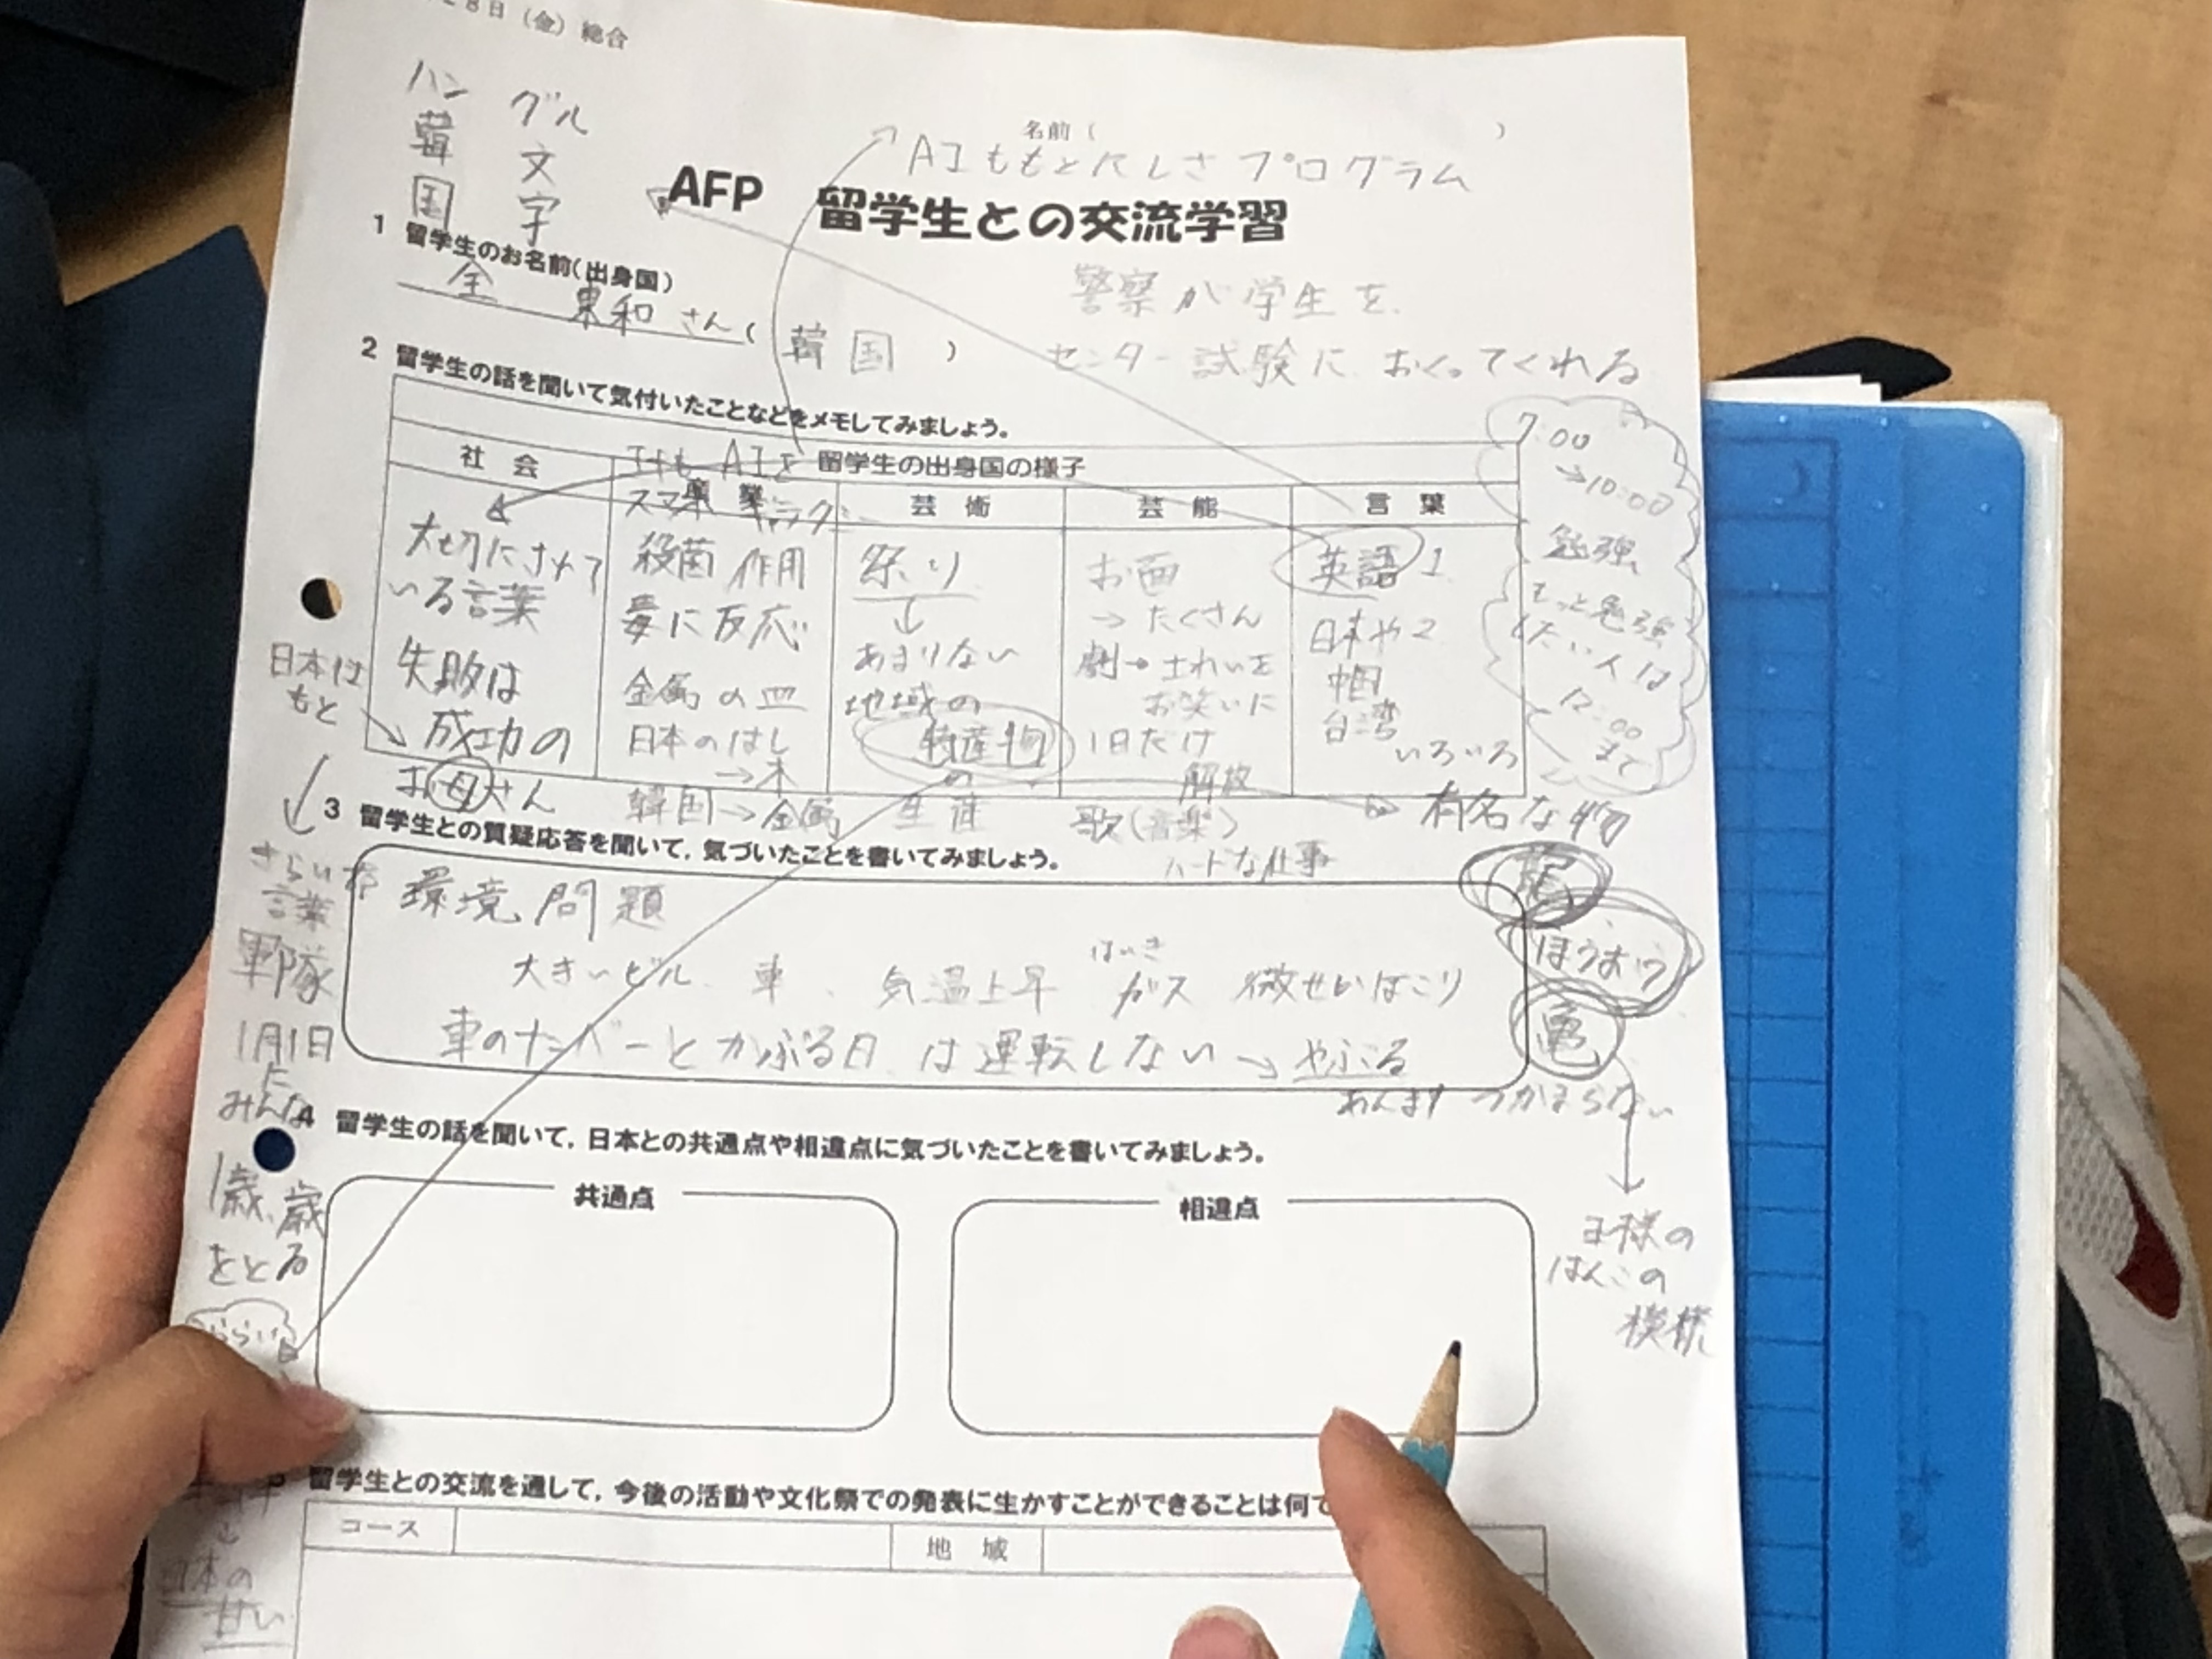 28日（金）総合
ハン グル
韓 文
国 字
名前（ ）
AIももとにしさ プログラム
AFP 留学生との交流学習
1 留学生のお名前（出身国）
金 東和 さん（ 韓国 ）
警察が学生を
センター試験に おくってくれる
2 留学生の話を聞いて気付いたことなどをメモしてみましょう。
留学生の出身国の様子
社 会
産 業
芸 術
芸 能
言 葉
大切にされて
いる言葉
失敗は
成功の
お母さん
日本は
もと
AIを
スマホ
殺菌 作用
毒に反応
金属の皿
日本のはし
→木
韓国→金属
祭り
↓
あまりない
地域の
特産物
の
生産
お面
→たくさん
劇→
お笑いに
1日だけ
解放
歌（音楽）
ハードな仕事
英語 1
日本や 2
中国
台湾
いろいろ
7:00
→10:00
勉強
もっと勉強
たい人は
12:00
まで
有名な物
龍
ほうおう
亀
王様の
はんこの
模様
3 留学生との質疑応答を聞いて，気づいたことを書いてみましょう。
環境問題
大きいビル、車、気温上昇 はいきガス 微せいほこり
車のナンバーとかぶる日は運転しない→やぶる
あんまり つかまらない
言葉
軍隊
1月1日
に
みんな
1歳、歳
をとる
日本の
甘い
4 留学生の話を聞いて，日本との共通点や相違点に気づいたことを書いてみましょう。
共通点
相違点
留学生との交流を通して，今後の活動や文化祭での発表に生かすことができることは何で
コース
地 域